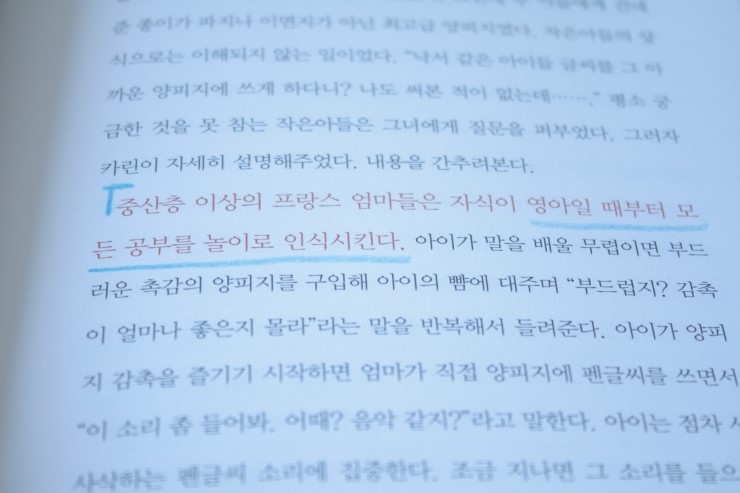 준 종이가 파지나 이면지가 아닌 최고급 양피지였다. 작은아들의 상
식으로는 이해되지 않는 일이었다. “낙서 같은 아이들 글씨를 그 아
까운 양피지에 쓰게 하다니? 나도 써본 적이 없는데…….” 평소 궁
금한 것을 못 참는 작은아들은 그녀에게 질문을 퍼부었다. 그러자
카린이 자세히 설명해주었다. 내용을 간추려본다.
중산층 이상의 프랑스 엄마들은 자식이 영아일 때부터 모
든 공부를 놀이로 인식시킨다. 아이가 말을 배울 무렵이면 부드
러운 촉감의 양피지를 구입해 아이의 뺨에 대주며 “부드럽지? 감촉
이 얼마나 좋은지 몰라”라는 말을 반복해서 들려준다. 아이가 양피
지 감촉을 즐기기 시작하면 엄마가 직접 양피지에 펜글씨를 쓰면서
“이 소리 좀 들어봐. 어때? 음악 같지?”라고 말한다. 아이는 점차 사
사삭하는 펜글씨 소리에 집중한다. 조금 지나면 그 소리를 들으